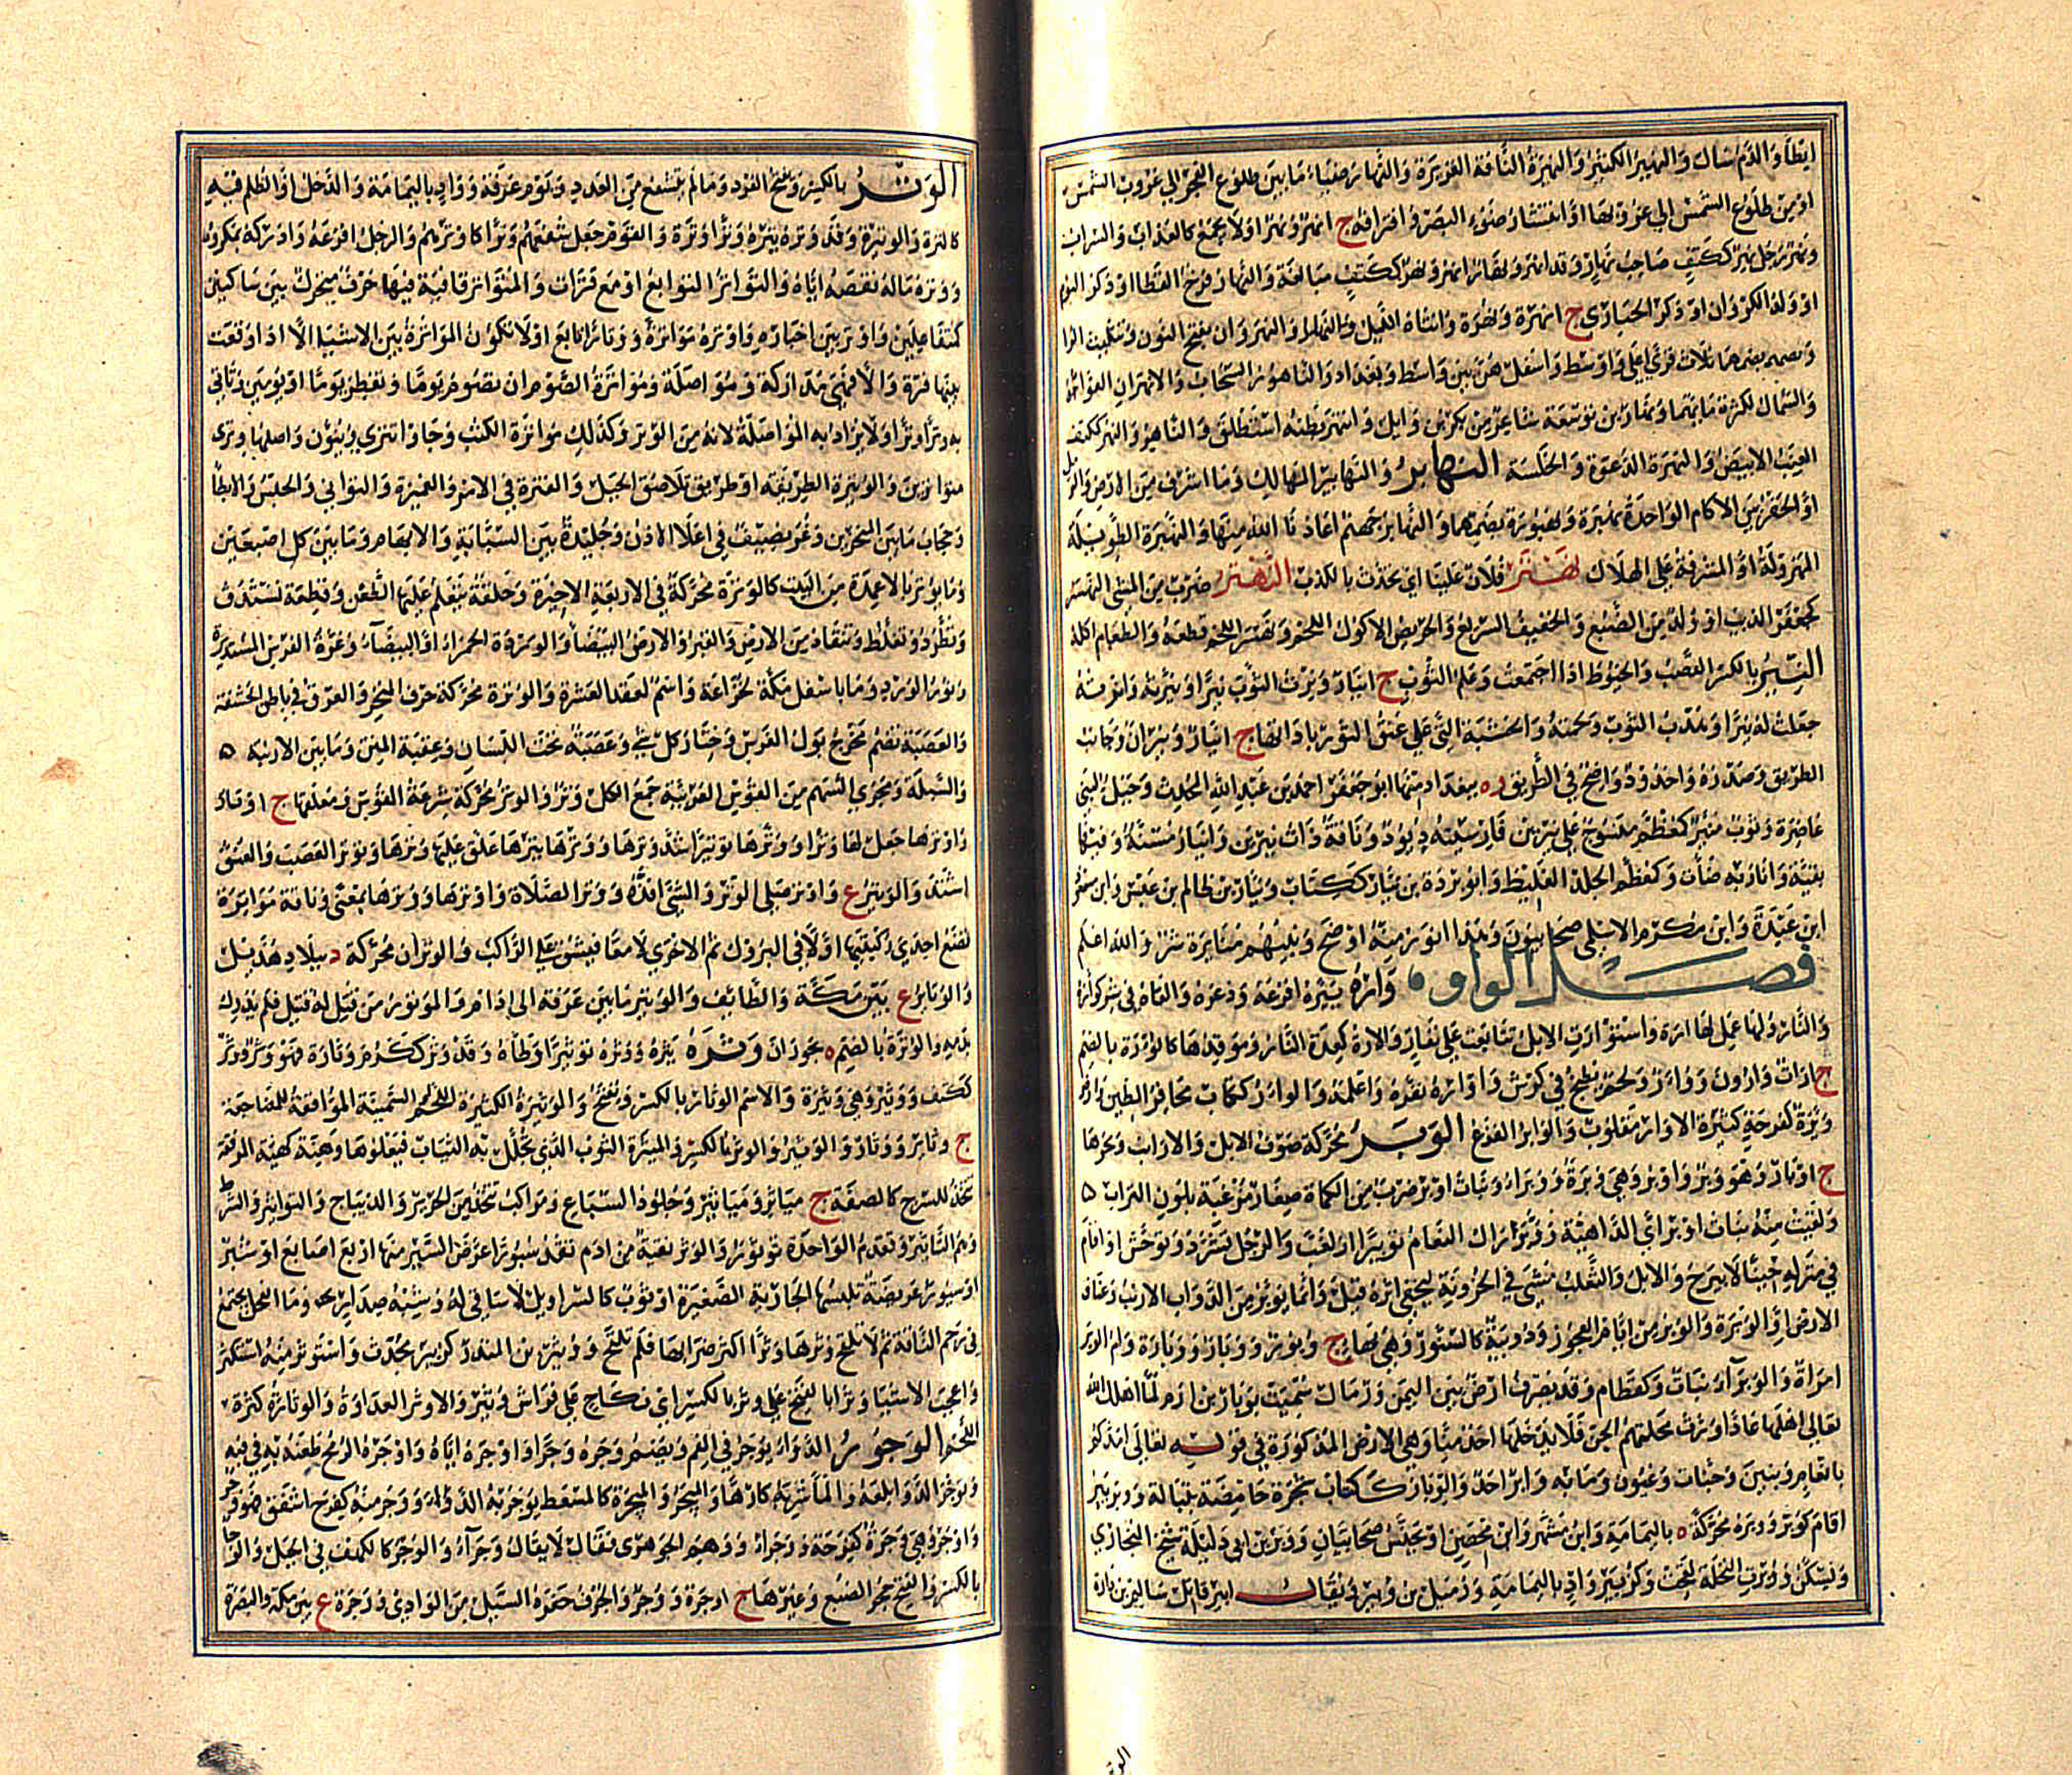 ايضا والدم سال والنهير الكثير والنهيرة الناقة الغزيرة والنهار ضياء ما بين طلوع الفجر الى غروب الشمس
او من طلوع الشمس الى غروبها او انتشار ضوء البصر وافتراقه ج انهر ونهر او لا يجمع كالعذاب والسراب
ورجل نهر ككتف صاحب نهار وقد انهر ونهار انهر ونهر ككتف مبالغة والنهار فرخ القطا او ذكر البوم
او ولد الكروان او ذكر الحبارى ج انهرة ونهر وانثاه الليل والنهروان بفتح النون وتثليث الرا
وبضمهما ثلاث قرى اعلى واوسط واسفل هن بين واسط وبغداد والناهور السحاب والانهران العواء
والسماك لكثرة مائهما ونهار بن توسعة شاعر من بكر بن وايل وانتهر بطنه استطلق والناهر والنهر ككتف
العنب الابيض والنهرة الدعوة والخلسة النهابر والنهابير المهالك وما اشرف من الارض والرمل
او الحفر بين الاكام الواحدة نهبرة ونهبورة بضمهما والنهابر جهنم اعاذنا الله منها والنهبرة الطويلة
المهزولة او المشرفة على الهلاك نهتر فلان علينا اي تحدث بالكذب النهثر ضرب من المشي النهسر
كجعفر الذيب او ولده من الضبع والخفيف السريع والحريص الاكول اللحم ونهسر اللحم قطعه والطعام اكله
النير بالكسر القصب والخيوط اذا اجتمعت وعلم الثوب ج انيار ونرت الثوب نيرا ونيرته وانرته
جعلت له نيرا وهدب الثوب ولحمته والخشبة التي على عنق الثور باداتها ج انيار ونيران وجانب
الطريق وصدره واخدود واضح في الطريق وه ببغداد منها ابو جعفر احمد بن عبد الله المحدث وجبل لبني
غاضرة وثوب منير كمعظم منسوج على نيرين وناقة ذات نيرين وانيار مسنة وفيها
بقية وكمعظم الجلد الغليظ وابو بردة بن نيار ككتاب ونيار بن ظالم بن عبس
ابن عبيدة وابن مكرم الاسلمي صحابيون وهذا انور منه اوضح وبينهم منايرة شر والله اعلم
فصل الواو وأره يئره افزعه وذعره والقاه في شر كوأره
والنار ولها عمل لها ارة واستوأرت الابل تتابعت على نفار والارة كعدة النار وموقدها كالوؤرة بالضم
ج ارات وارون ووأر ولحم يطبخ في كرش واوأره نفره واعلمه والوار ككتاب محافر الطين وارض
وئرة كفرحة كثيرة الاوار مقلوب والوائر الفزع الوبر محركة صوف الابل والارانب ونحوها
ج اوبار وهو وبر واوبر وهي وبرة ووبراء وبنات اوبر ضرب من الكماة صغار مزغبة بلون التراب
ولقيت منه بنات اوبر اي الداهية ووبر رال النعام توبيرا ازلغب والرجل تشرد وتوحش او اقام
في منزله حينا لا يبرح والابل والثعلب مشى في الحزونة ليخفى اثره قيل وانما يوبر من الدواب الارنب وعناق
الارض او الوبرة والوبر من ايام العجوز ودويبة كالسنور وهي بهاء ج وبور ووبار ووبارة وام الوبر
امراة والوبراء نبات وكقطام وقد يصرف ارض بين اليمن ورمال سميت بوبار بن ارم لما اهلك الله
تعالى اهلها عادا اورث محلتهم الجن فلا ينزلها احد منا وهي الارض المذكورة في قوله تعالى امدكم
بانعام وبنين وجنات وعيون وما به وابر احد والوبار ككتاب شجرة حامضة بتبالة ووبر يبر
اقام كوبر ووبرة محركة ه باليمامة وابن مشهر وابن محصن او يحنس صحابيان ووبر بن ابي دليلة شيخ البخاري
ويسكن ووبرت النخلة لقحت وكزبير واد باليمامة وزميل بن وبير ويقال ابير قاتل سالم بن دارة
الوتر بالكسر ويفتح الفرد وما لم يتشفع من العدد ويوم عرفة وواد باليمامة والذحل او الظلم فيه
كالترة والوتيرة وقد وتره يتره وترا وترة والقوم جعل شفعهم وترا كاوترهم والرجل افزعه وادركه بمكروه
ووتره ماله نقصه اياه والتواتر التتابع او مع فترات والمتواتر قافية فيها حرف متحرك بين ساكنين
كمفاعيلن واوتر بين اخباره وواتره مواترة ووتارا تابع او لا تكون المواترة بين الاشياء الا اذا وقعت
بينها فترة والا فهي مداركة ومواصلة ومواترة الصوم ان تصوم يوما وتفطر يوما او يومين وتاتي
به وترا وترا ولا يراد به المواصلة لانه من الوتر وكذلك مواترة الكتب وجاوا تترى وينون واصلها وترى
متواترين والوتيرة الطريقة او طريق تلاصق الجبل والفترة في الامر والغميزة والتواني والحبس والابطا
وحجاب ما بين المنخرين وغريضيف في اعلا الاذن وجليدة بين السبابة والابهام وما بين كل اصبعين
وما يوتر بالاعمدة من البيت كالوترة محركة في الاربعة الاخيرة وحلقة يتعلم عليها الطعن وقطعة تستدق
وتطرد وتغلظ وتنقاد من الارض والقبر والارض البيضا والوردة الحمراء او البيضاء وغرة الفرس المستديرة
ونور الورد وما باسفل مكة لخزاعة واسم لعقد العشرة والوترة محركة حرف المنخر والعرق في باطن الحشفة
والعصبة تضم مخرج بول الفرس وحتار كل شي وعصبة تحت اللسان وعقبة المتن وما بين الارنبة
والسبلة ومجرى السهم من القوس العربية جمع الكل وتر والوتر محركة شرعة القوس ومعلقها ج اوتار
واوترها جعل لها وترا ووترها توتيرا شد وترها ووترها يترها علق عليها وترها وتوتر العصب والعنق
اشتد والوتير ع واوتر صلى الوتر والشي افذه ووتر الصلاة واوترها ووترها بمعنى وناقة مواترة
تضع احدى ركبتيها اولا في البروك ثم الاخرى لا معا فيشق على الراكب والوتران محركة د ببلاد هذيل
والوتائر ع بين مكة والطائف والوتير ما بين عرفة الى ادام والموتور من قتل له قتيل فلم يدرك
بدمه والوترة بالضم ه بحوران وثره يثره ووثره توثيرا وطأه وقد وثر ككرم وثارة فهو وثر ووثر
ككتف ووثير وهي وثيرة والاسم الوثار بالكسر ويفتح والوثيرة الكثيرة اللحم السمينة الموافقة للمضاجعة
ج وثائر ووثار والوثير والوثر بالكسر والميثرة الثوب الذي تجلل به الثياب فيعلوها وهنة كهيئة المرفقة
تتخذ للسرج كالصفة ج مياثر ومواثر وجلود السباع ومراكب تتخذ من الحرير والديباج والتواثير الشرط
وهم التاثير وتقدم الواحدة توثور والوثر نقبة من ادم تقد سيورا عرض السير منها اربع اصابع او شبر
او سيور عريضة تلبسها الجارية الصغيرة او ثوب كالسراويل لا ساقي له وشبه صدار وماء الفحل يجتمع
في رحم الناقة ثم لا تلقح وثرها وثرا اكثر ضرابها فلم تلقح ووثير بن المنذر كزبير محدث واستوثر منه استكثر
واعجب الاشياء وثر بالفتح على وثر بالكسر اي نكاح على فراش وثير والاوثر العداوة والوثارة كثرة
اللحم الوجور الدواء يوجر في الفم ويضم وجره وجرا واوجره اياه واوجره الرمح طعنه به في فيه
وتوجر الدوا بلعه والماء شربه كارها والميجر والميجرة كالمسعط يوجر به الدواء ووجر منه كفرح اشفق فهو وجر
واوجر وهي وجرة كفرحة ووجراء ووهم الجوهري فقال لا يقال وجراء والوجر كالكهف في الجبل والوجار
بالكسر والفتح جحر الضبع وغيرها ج اوجرة ووجر والجرف حفره السيل من الوادي ووجرة ع بين مكة والبصرة